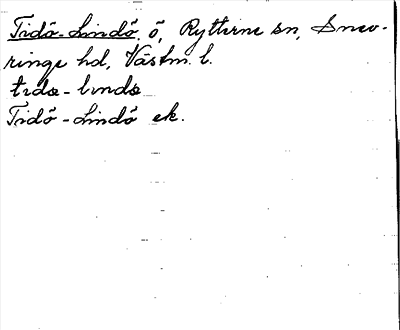 Tidö-Lindö, ö, Rytterne sn, Snev-
ringe hd, Västm. l.
tıdə-lındə
Tidö-Lindö ek.